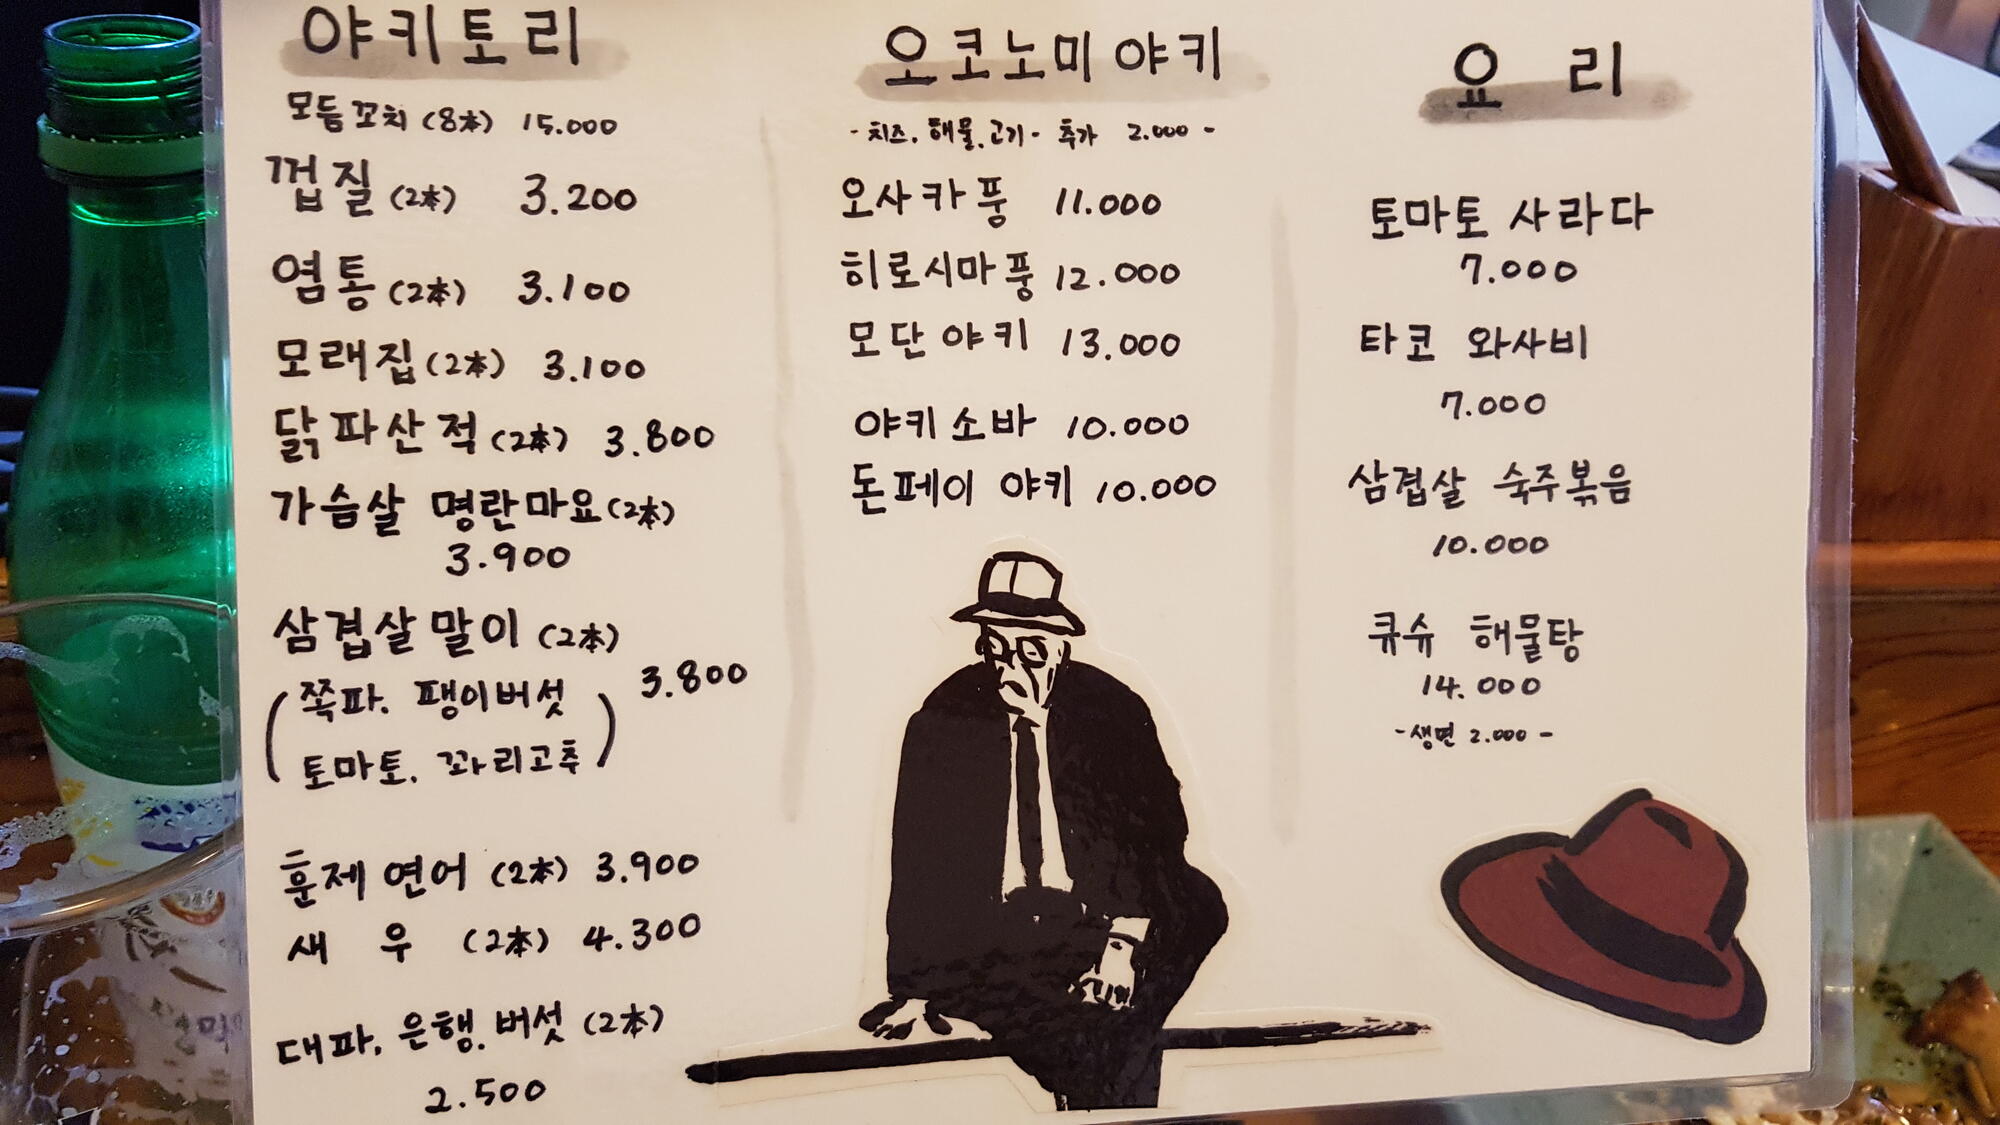 야키토리
모듬꼬치 (8本) 15.000
껍질 (2本) 3.200
염통 (2本) 3.100
모래집 (2本) 3.100
닭파산적 (2本) 3.800
가슴살 명란마요 (2本)
3.900
삼겹살말이 (2本)
(쪽파. 팽이버섯
토마토. 꽈리고추) 3.800
훈제연어 (2本) 3.900
새 우 (2本) 4.300
대파. 은행. 버섯 (2本)
2.500
오코노미야키
- 치즈. 해물. 고기 - 추가 2.000 -
오사카풍 11.000
히로시마풍 12.000
모단야키 13.000
야키소바 10.000
돈페이 야키 10.000
요 리
토마토 사라다
7.000
타코 와사비
7.000
삼겹살 숙주볶음
10.000
큐슈 해물탕
14.000
- 생면 2.000 -